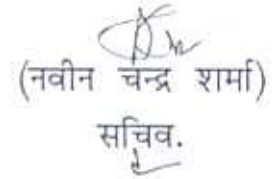 (नवीन चन्द्र शर्मा)
सचिव.